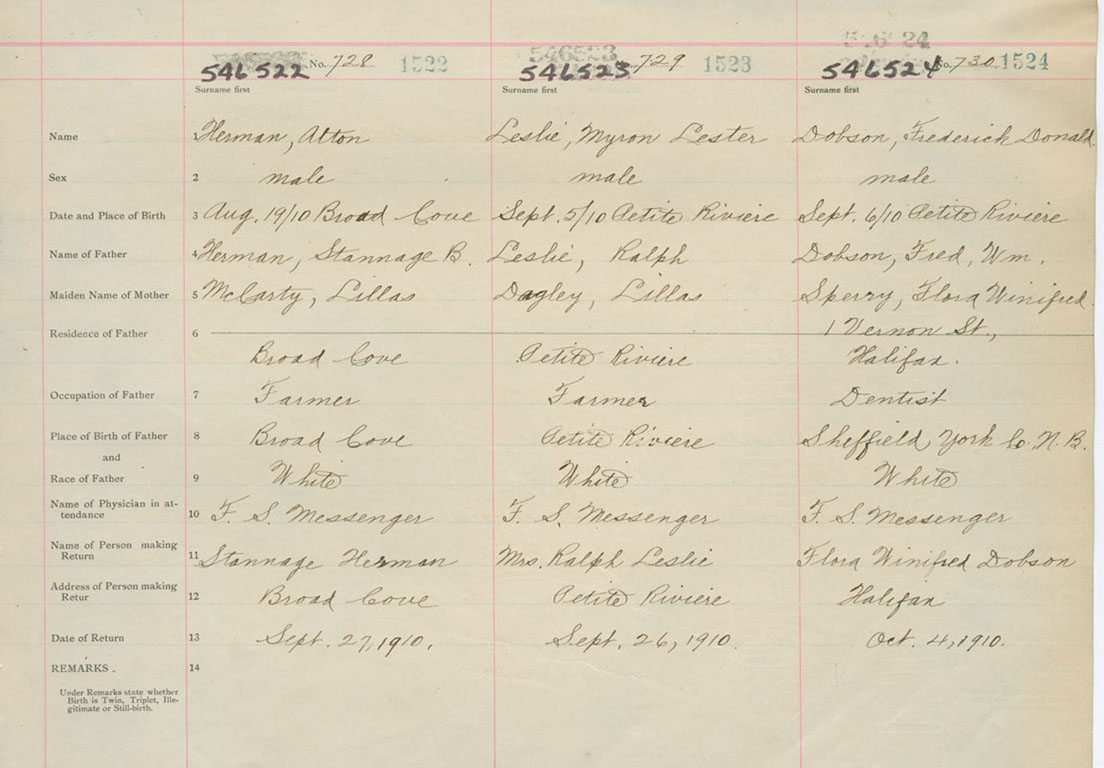 546523 546524
546522 No. 728 1522 546523 729 1523 546524 No. 730 1524
Surname first Surname first Surname first
Name 1 Herman, Atton Leslie, Myron Lester Dobson, Frederick Donald
Sex 2 male male male
Date and Place of Birth 3 Aug. 19/10 Broad Cove Sept. 5/10 Petite Riviere Sept. 6/10 Petite Riviere
Name of Father 4 Herman, Stannage B. Leslie, Ralph Dobson, Fred, Wm.
Maiden Name of Mother 5 McCarty, Lillas Dagley, Lillas Sperry, Flora Winifred
Residence of Father 6 1 Vernon St.,
Broad Cove Petite Riviere Halifax.
Occupation of Father 7 Farmer Farmer Dentist
Place of Birth of Father 8 Broad Cove Petite Riviere Sheffield, York Co. N. B.
and
Race of Father 9 White White White
Name of Physician in at-
tendance 10 F. S. Messenger F. S. Messenger F. S. Messenger
Name of Person making
Return 11 Stannage Herman Mrs. Ralph Leslie Flora Winifred Dobson
Address of Person making
Retur 12 Broad Cove Petite Riviere Halifax
Date of Return 13 Sept. 27, 1910. Sept. 26, 1910. Oct. 4, 1910.
REMARKS. 14
Under Remarks state whether
Birth is Twin, Triplet, Ille-
gitimate or Still-birth.